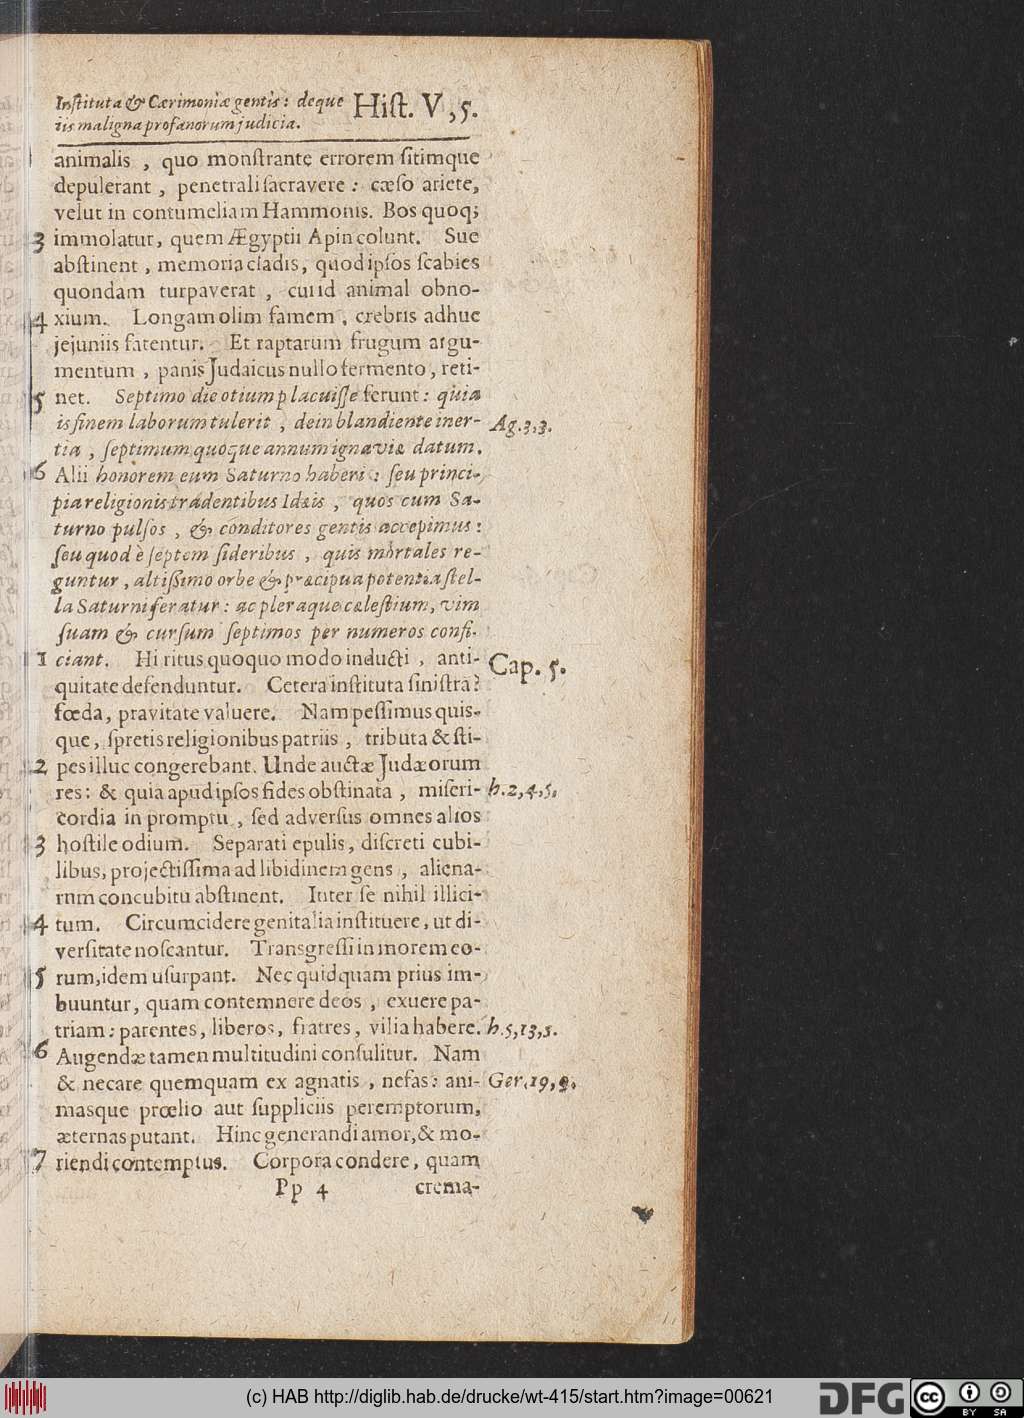 Inſtituta & Cærimoniæ gentis: deque
iis maligna profanorum judicia.
Hiſt. V, 5.
animalis , quo monſtrante errorem ſitimque
depulerant , penetrali ſacravere : cæſo ariete,
velut in contumeliam Hammonis. Bos quoq;
3 immolatur, quem Ægyptii Apin colunt. Sue
abſtinent , memoria cladis, quod ipſos ſcabies
quondam turpaverat , cui id animal obno-
4 xium. Longam olim famem , crebris adhuc
jejuniis fatentur. Et raptarum frugum argu-
mentum , panis Judaicus nullo fermento, reti-
5 net. Septimo die otium placuiſſe ferunt: quia
is finem laborum tulerit , dein blandiente iner- Ag. 3,3.
tia , ſeptimum quoque annum ignaviæ datum.
6 Alii honorem eum Saturno haberi : ſeu princi-
pia religionis tradentibus Idæis , quos cum Sa-
turno pulſos , & conditores gentis accepimus :
ſeu quod è ſeptem ſideribus , quis mortales re-
guntur , altiſſimo orbe & præcipua potentia ſtel-
la Saturni feratur : ac pleraque cæleſtium, vim
ſuam & curſum ſeptimos per numeros confi-
1 ciant. Hi ritus quoquo modo inducti , anti- Cap. 5.
quitate defenduntur. Cetera inſtituta ſiniſtra?
fœda, pravitate valuere. Nam peſſimus quis-
que, ſpretis religionibus patriis , tributa & ſti-
2 pes illuc congerebant. Unde auctæ Judæorum
res: & quia apud ipſos fides obſtinata , miſeri- h. 2,4,5.
cordia in promptu , ſed adverſus omnes alios
3 hoſtile odium. Separati epulis, diſcreti cubi-
libus, projectiſſima ad libidinem gens , aliena-
rum concubitu abſtinent. Inter ſe nihil illici-
4 tum. Circumcidere genitalia inſtituere, ut di-
verſitate noſcantur. Transgreſſi in morem eo-
5 rum, idem uſurpant. Nec quidquam prius im-
buuntur, quam contemnere deos , exuere pa-
triam : parentes, liberos, fratres, vilia habere. h. 5,13,3.
6 Augendæ tamen multitudini conſulitur. Nam
& necare quemquam ex agnatis , nefas: ani- Ger. 19, 9.
masque prœlio aut ſuppliciis peremptorum,
æternas putant. Hinc generandi amor, & mo-
7 riendi contemptus. Corpora condere, quam
Pp 4 crema-
(c) HAB http://diglib.hab.de/drucke/wt-415/start.htm?image=00621
DFG
cc BY SA